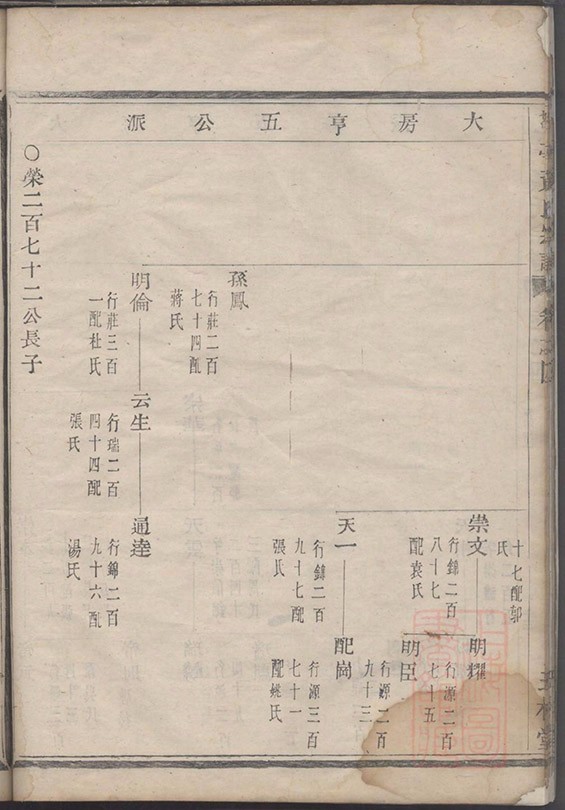 大房亨五公派
十七配郭
氏
崇文
行錦二百
八十七
配袁氏
明耀
行源二百
七十五
明臣
行源二百
九十三
天一
行錦二百
九十七配
張氏
配崗
行源三百
七十一
配姚氏
孫鳳
行莊二百
七十四配
蔣氏
明倫
行莊三百
一配杜氏
云生
行瑞二百
四十四配
張氏
通達
行錦二百
九十六配
湯氏
〇榮二百七十二公長子